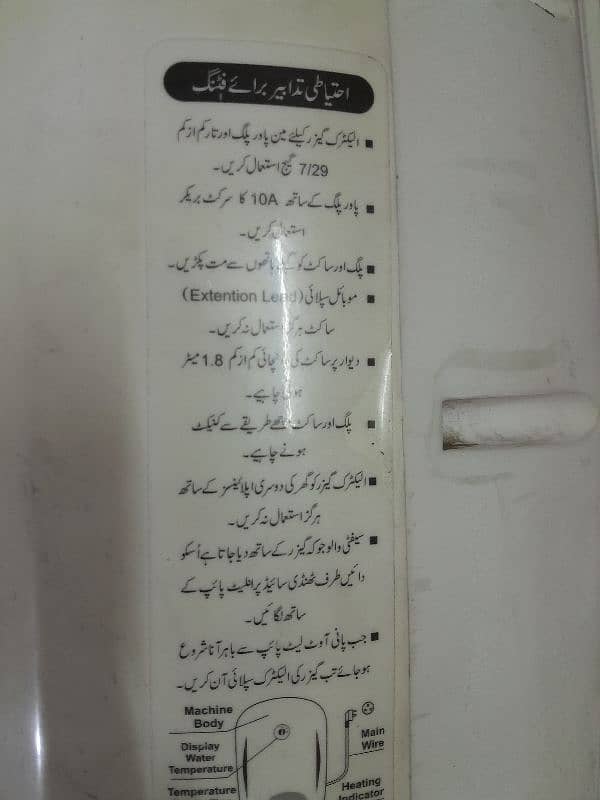 احتیاطی تدابیر برائے فٹنگ
■ الیکٹرک گیزر کیلئے مین پاور پلگ اور تار کم از کم
7/29 گیج استعمال کریں۔
■ پاور پلگ کے ساتھ 10A کا سرکٹ بریکر
استعمال کریں۔
■ پلگ اور ساکٹ کو گیلے ہاتھوں سے مت پکڑیں۔
■ موبائل سپلائی (Extention Lead)
ساکٹ ہرگز استعمال نہ کریں۔
■ دیوار پر ساکٹ کی اونچائی کم از کم 1.8 میٹر
ہونی چاہیے۔
■ پلگ اور ساکٹ اچھے طریقے سے کنیکٹ
ہونے چاہیے۔
■ الیکٹرک گیزر کو گھر کی دوسری اپلائینسز کے ساتھ
ہرگز استعمال نہ کریں۔
■ سیفٹی والو جو کہ گیزر کے ساتھ دیا جاتا ہے اُسکو
دائیں طرف ٹھنڈی سائیڈ پر انلیٹ پائپ کے
ساتھ لگائیں۔
■ جب پانی آوٹ لیٹ پائپ سے باہر آنا شروع
ہو جائے تب گیزر کی الیکٹرک سپلائی آن کریں۔
Machine
Body
Main
Wire
Display
Water
Temperature
Temperature
Heating
Indicator